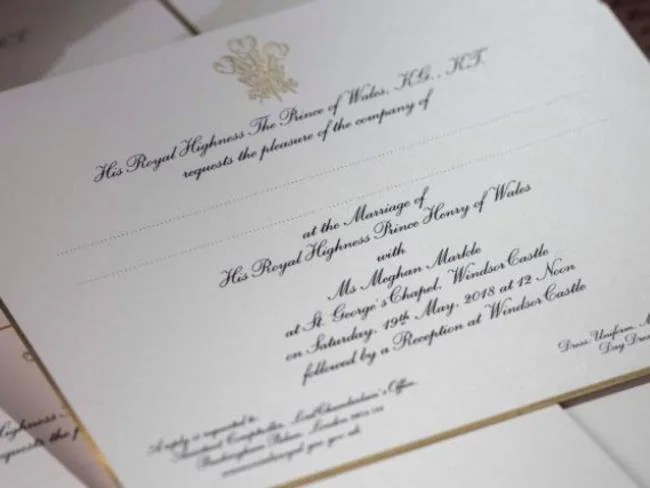 His Royal Highness The Prince of Wales, K.G., K.T.
requests the pleasure of the company of
at the Marriage of
His Royal Highness Prince Henry of Wales
with
Ms Meghan Markle
at St. George's Chapel, Windsor Castle
on Saturday, 19th May, 2018 at 12 Noon
followed by a Reception at Windsor Castle
Dress: Uniform,
Day
A reply is requested to:
Assistant Comptroller, Lord Chamberlain's Office,
Buckingham Palace, London
Highness
requests the